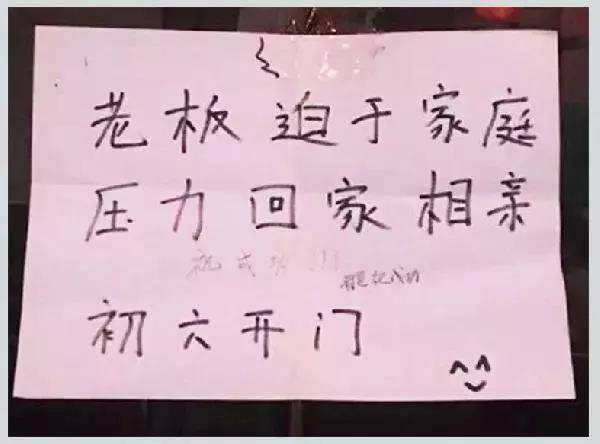 老板迫于家庭
压力回家相亲
祝成功!!!
初六开门